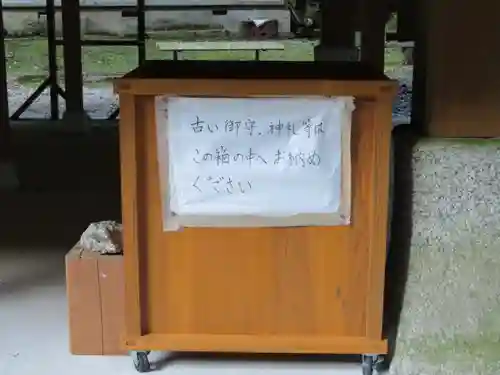 古い御守、神札等は
この箱の中へお納め
ください